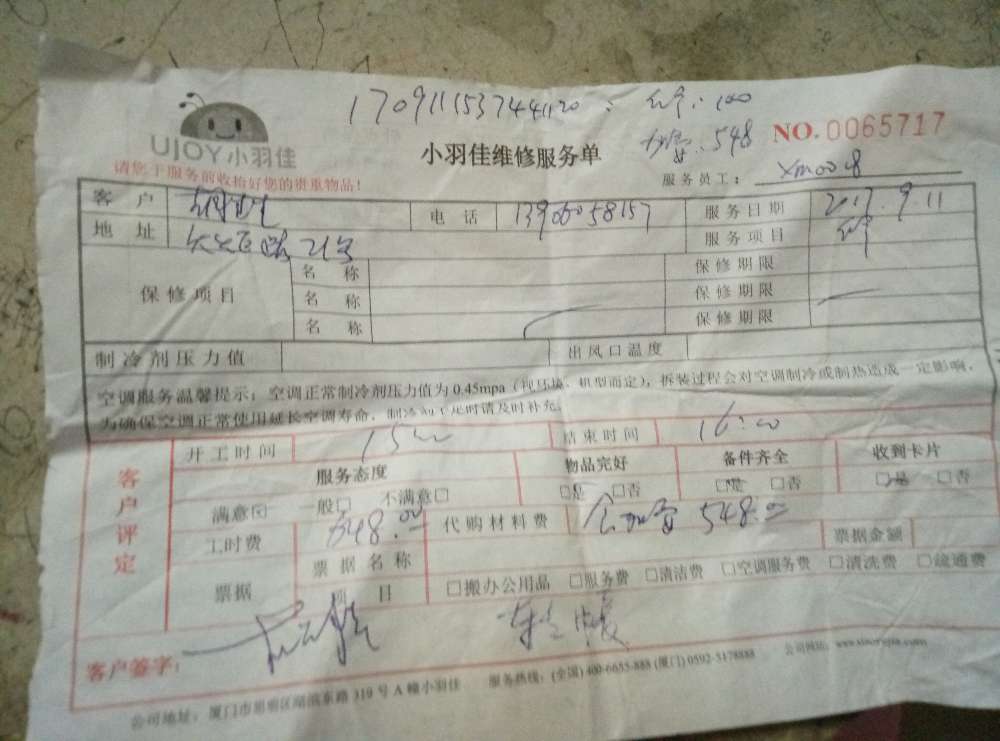 170911153744120 : 100
UJOY小羽佳
小羽佳维修服务单
加雪:548
NO.0065717
请您于服务前收拾好您的贵重物品!
服务员工: xm0018
客户 电话 服务日期 2017.9.11
地址 21号 服务项目
保修项目
名称 保修期限
名称 保修期限
名称 保修期限
制冷剂压力值 出风口温度
空调服务温馨提示:空调正常制冷剂压力值为0.45mpa(视环境、机型而定),拆装过程会对空调制冷或制热造成一定影响,
为确保空调正常使用延长空调寿命,制冷剂不足时请及时补充。
客户评定
开工时间 15:00 结束时间 16:00
服务态度 物品完好 备件齐全 收到卡片
满意☑ 一般□ 不满意□ □是 □否 □是 □否 □是 □否
工时费 648.00 代购材料费 548.00
票据 票据名称 票据金额
项目 □搬办公用品 □服务费 □清洁费 □空调服务费 □清洗费 □疏通费
客户签字:
公司地址:厦门市思明区湖滨东路319号A幢小羽佳 服务热线:(全国)400-6655-888 (厦门)0592-5178888 公司网站:www.xiaoyujia.com